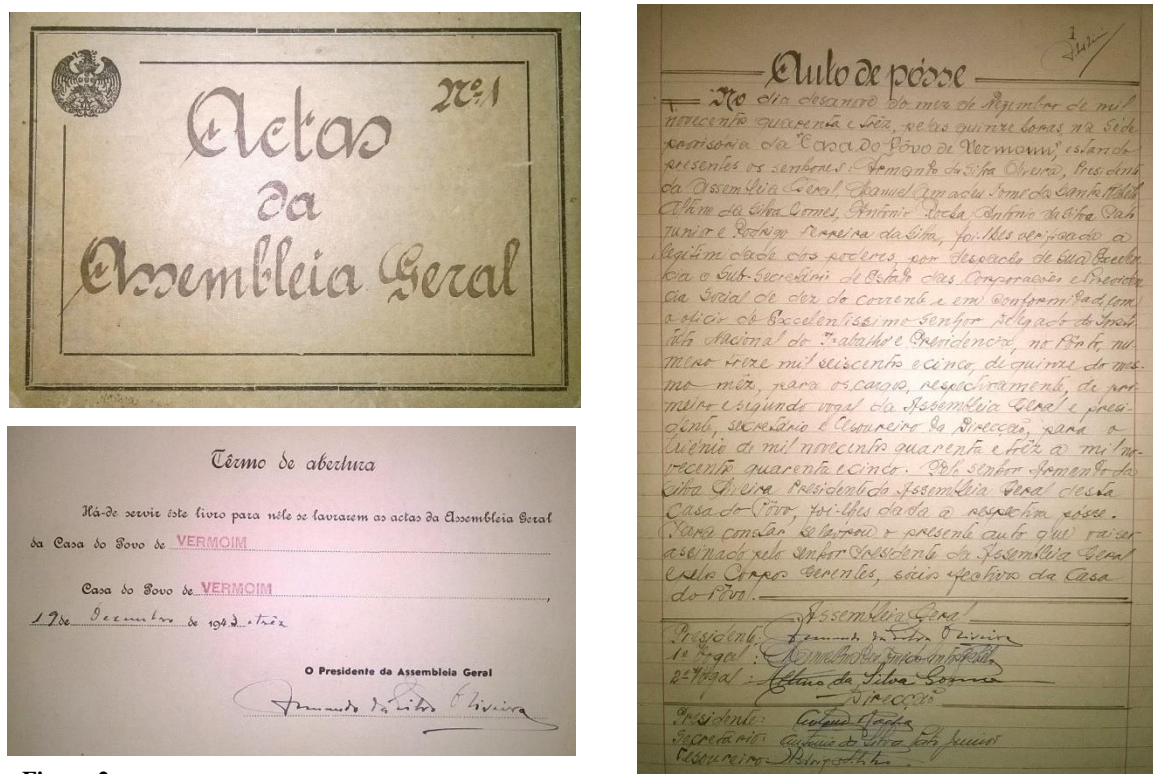 Actas
Nº 1
da
Assembleia Geral
Têrmo de abertura
Há-de servir êste livro para nêle se lavrarem as actas da Assembleia Geral
da Casa do Povo de VERMOIM
Casa do Povo de VERMOIM
19 de Dezembro de 1943 três
O Presidente da Assembleia Geral
Armando da Silva Oliveira
1
Auto de pósse
No dia desanove do mez de Dezembro de mil
novecentos quarenta e trêz, pelas quinze horas, na Séde
provisoria da "Casa do Póvo de Vermoim", estando
presentes os senhores: Armando da Silva Oliveira, Presidente
da Assembleia Geral, Manuel Amadeu
Altino da Silva Gomes, António Rocha, António da Silva
Junior e Rodrigo Ferreira da Silva, foi-lhes verificado a
legitimidade dos poderes, por despacho de Sua Excelen
cia o Sub-Secretário de Estado das Corporações e Previden
cia Social de dez do corrente e em conformidade com
o oficio do Excelentissimo Senhor Delgado do Insti
tuto Nacional do Trabalho e Previdencia, no Pôrto, nu
mero treze mil seiscentos e cinco, de quinze do mes-
mo mêz, para os cargos, respectivamente, de pri
meiro e segundo vogal da Assembleia Geral e presi-
dente, secretário e tesoureiro da Direcção, para o
triénio de mil novecentos quarenta e trêz a mil no-
vecentos quarenta e cinco. Pelo senhor Armando da
Silva Oliveira Presidente da Assembleia Geral desta
Casa do Póvo, foi-lhes dada a respectiva pósse.
Para constar se lavrou o presente auto que vai ser
assinado pelo senhor Presidente da Assembleia Geral
e pelos Corpos Gerentes, sócios efectivos da Casa
do Póvo.
Assembleia Geral
Presidente: Armando da Silva Oliveira
1º Vogal:
2º Vogal: Altino da Silva Gomes
Direcção
Presidente: António Rocha
Secretário: António da Silva Junior
Tesoureiro: